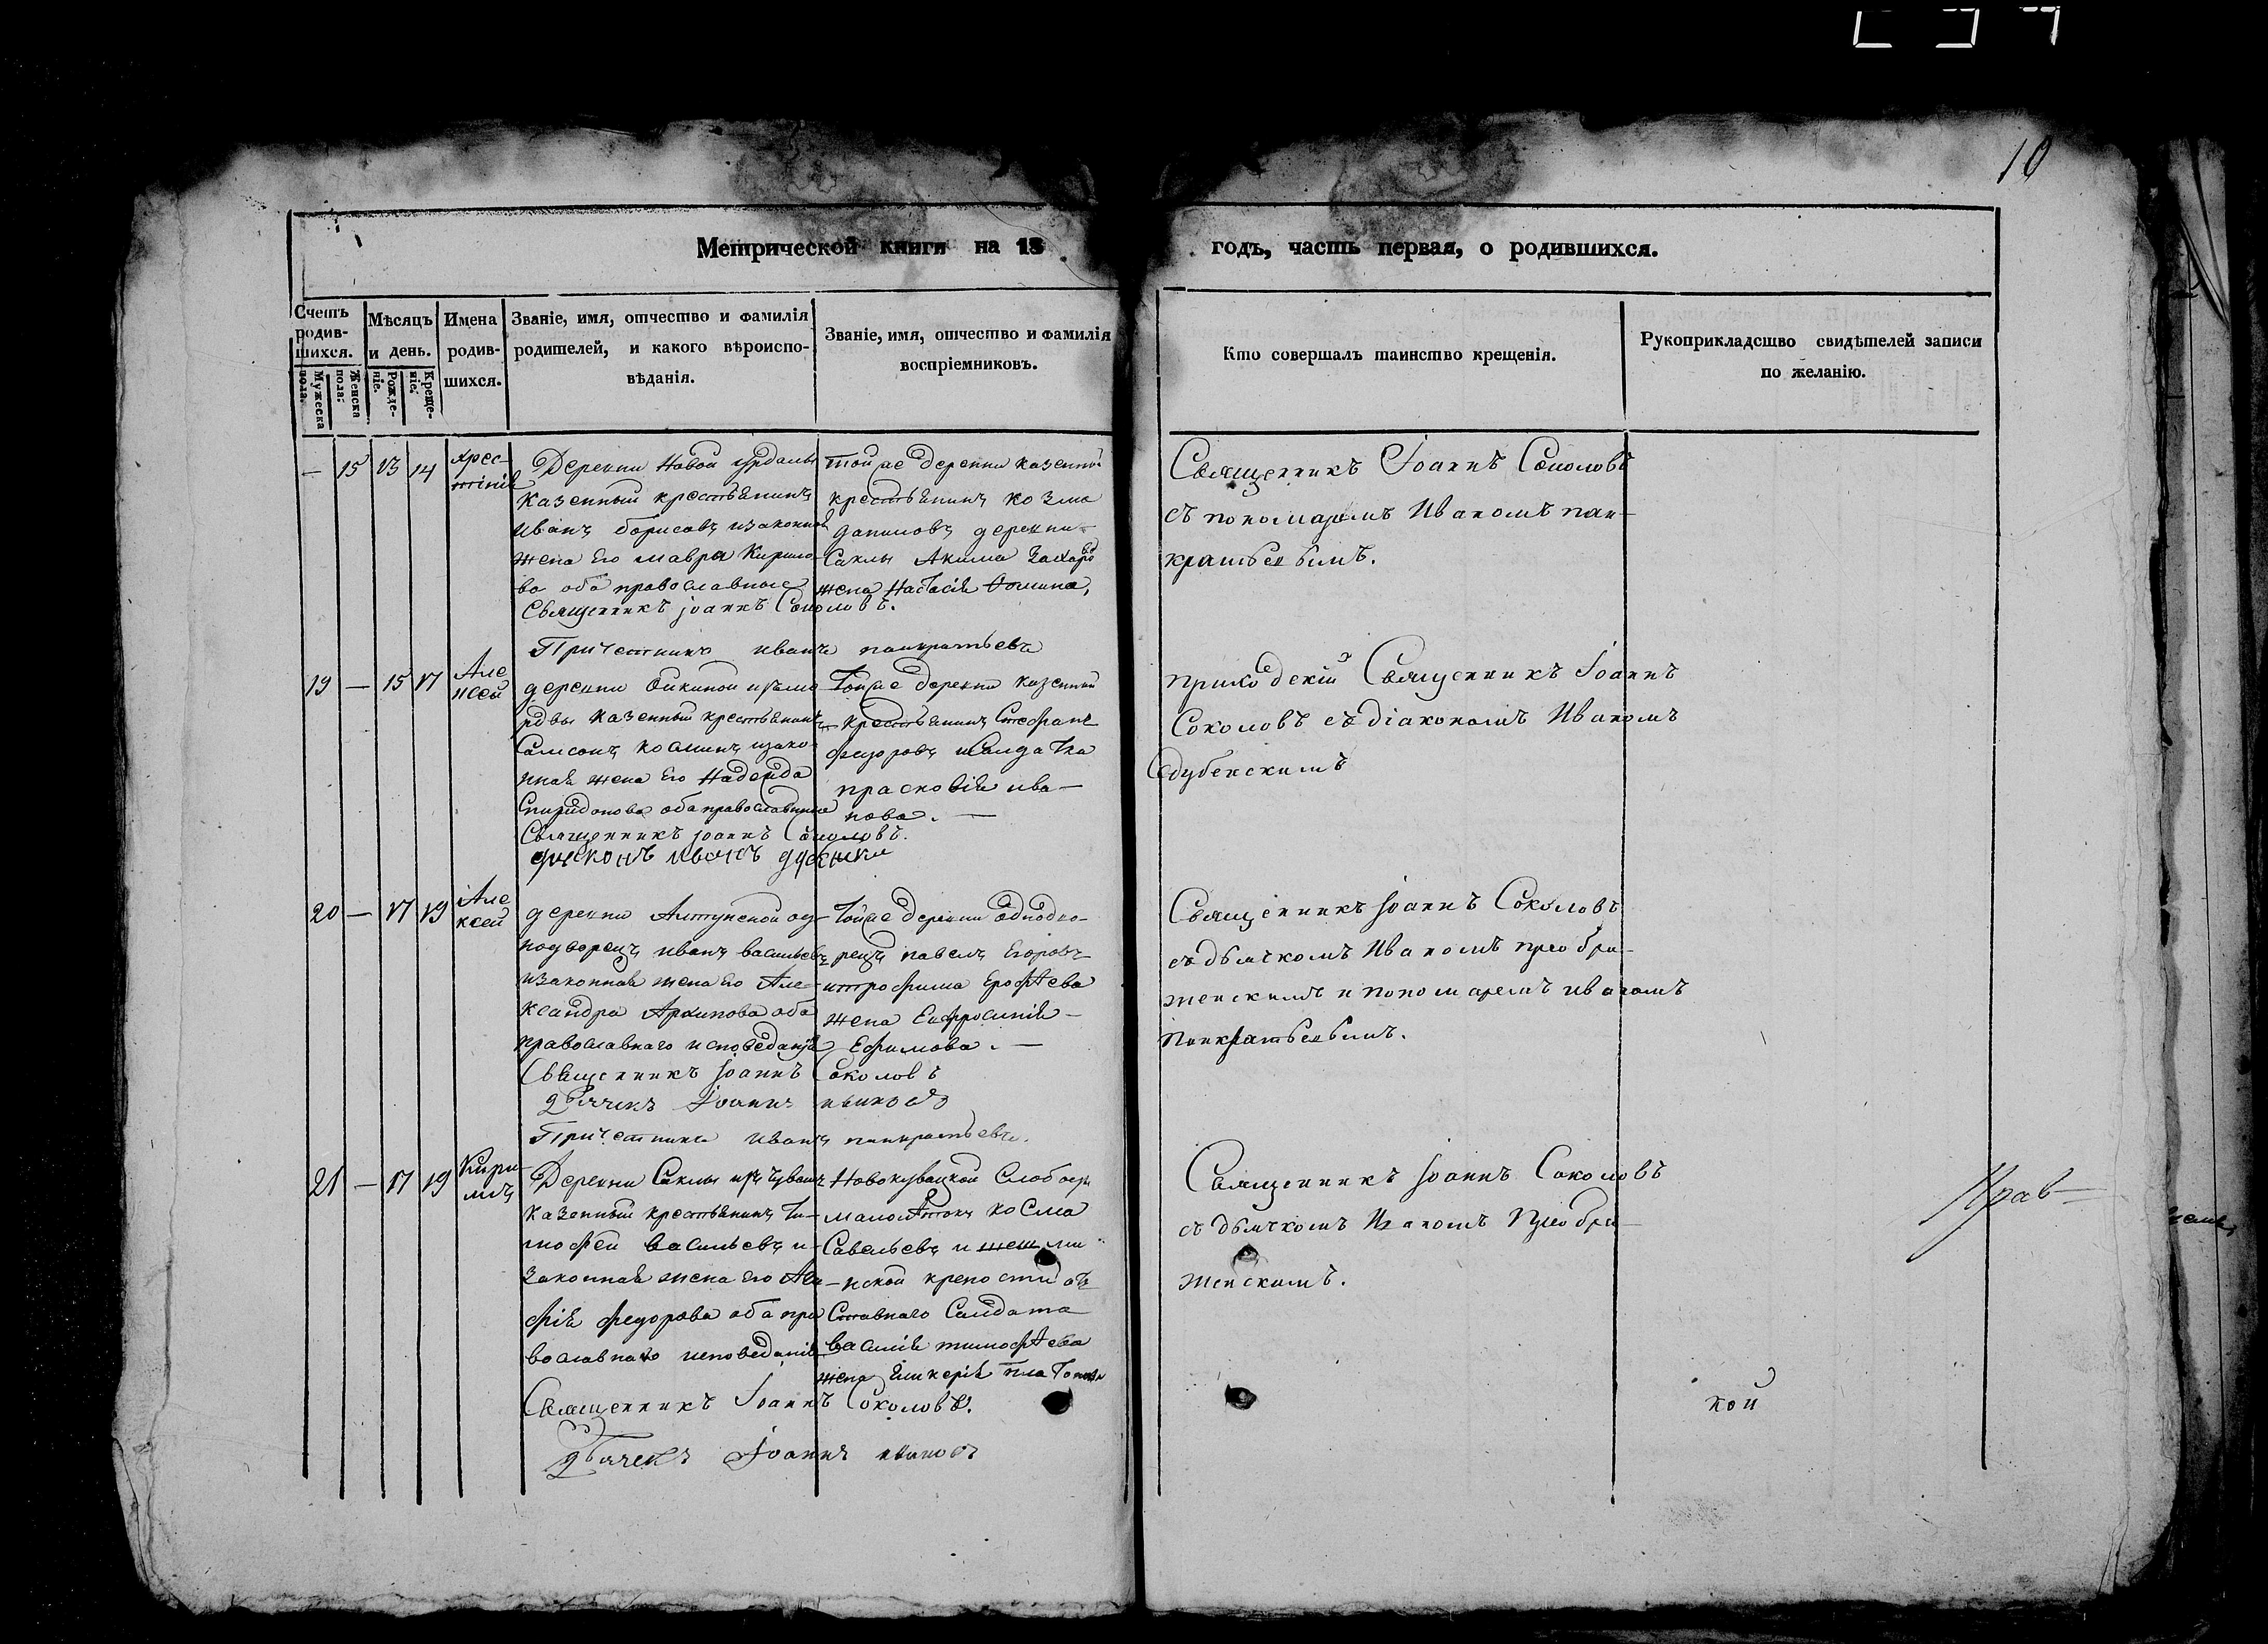 10
Метрической книги на 18 годъ, часть первая, о родившихся.
Счетъ родив-шихся.
Мужеска пола.
Женска пола.
Мѣсяцъ и день.
Рожде-ніе.
Креще-ніе.
Имена родив-шихся.
Званіе, имя, отчество и фамилія
родителей, и какого вѣроиспо-
вѣданія.
Званіе, имя, отчество и фамилія
воспріемниковъ.
Кто совершалъ таинство крещенія.
Рукоприкладство свидѣтелей записи
по желанію.
— 15 13 14
Деревни Новой
казенный крестьянинъ
иванъ борисовъ изаконная
жена Его мавра Кирило-
ва оба православные
Священникъ Іоаннъ Соколовъ.
Причетникъ иванъ панкратьевъ
тойже деревни казенной
крестьянинъ козма
даниловъ деревни
Саклы Акима Захаро
жена Настасія Фомина,
Священникъ Іоаннъ Соколовъ
съ пономаремъ Иваномъ пан-
кратьевымъ.
19 — 15 17
Але
ксей
деревни
казенный крестьянинъ
Самсонъ косминъ изако-
нная жена Его Надежда
Спиридонова оба православные
Священникъ Іоаннъ Соколовъ.
диаконъ иванъ
Тойже деревни казенный
крестьянинъ Стефанъ
федоровъ исалдатка
прасковія ива-
нова. —
приходскій Священникъ Іоаннъ
Соколовъ съ діакономъ Иваномъ
20 — 17 19
Але
ксей
деревни од-
нодворецъ иванъ васильевъ
изаконная жена Его Але-
ксандра Архипова оба
православнаго исповеданія
Священникъ Іоаннъ Соколовъ
дьячекъ Іоаннъ
Причетникъ иванъ панкратьевъ.
Тойже деревни однодво-
рецъ павелъ Егоровъ
итрофима Ерофѣева
жена Ефросинія —
Ефимова. —
Священникъ Іоаннъ Соколовъ
съ дьячкомъ Иваномъ преобра-
женскимъ и пономаремъ иваномъ
Панкратьевымъ.
21 — 17 19
Кири-
лъ
Деревни Саклы изъ чувашъ
казенный крестьянинъ Ти-
мофей васильевъ и
законная жена его
федорова оба пра
вославнаго исповеданія
Священникъ Іоаннъ Соколовъ.
дьячекъ Іоаннъ
Слободы
косма
Савельевъ и
нской крепости от
ставнаго Салдата
василія тимофѣева
жена
Священникъ Іоаннъ Соколовъ
съ дьячкомъ Иваномъ Преобра-
женскимъ.